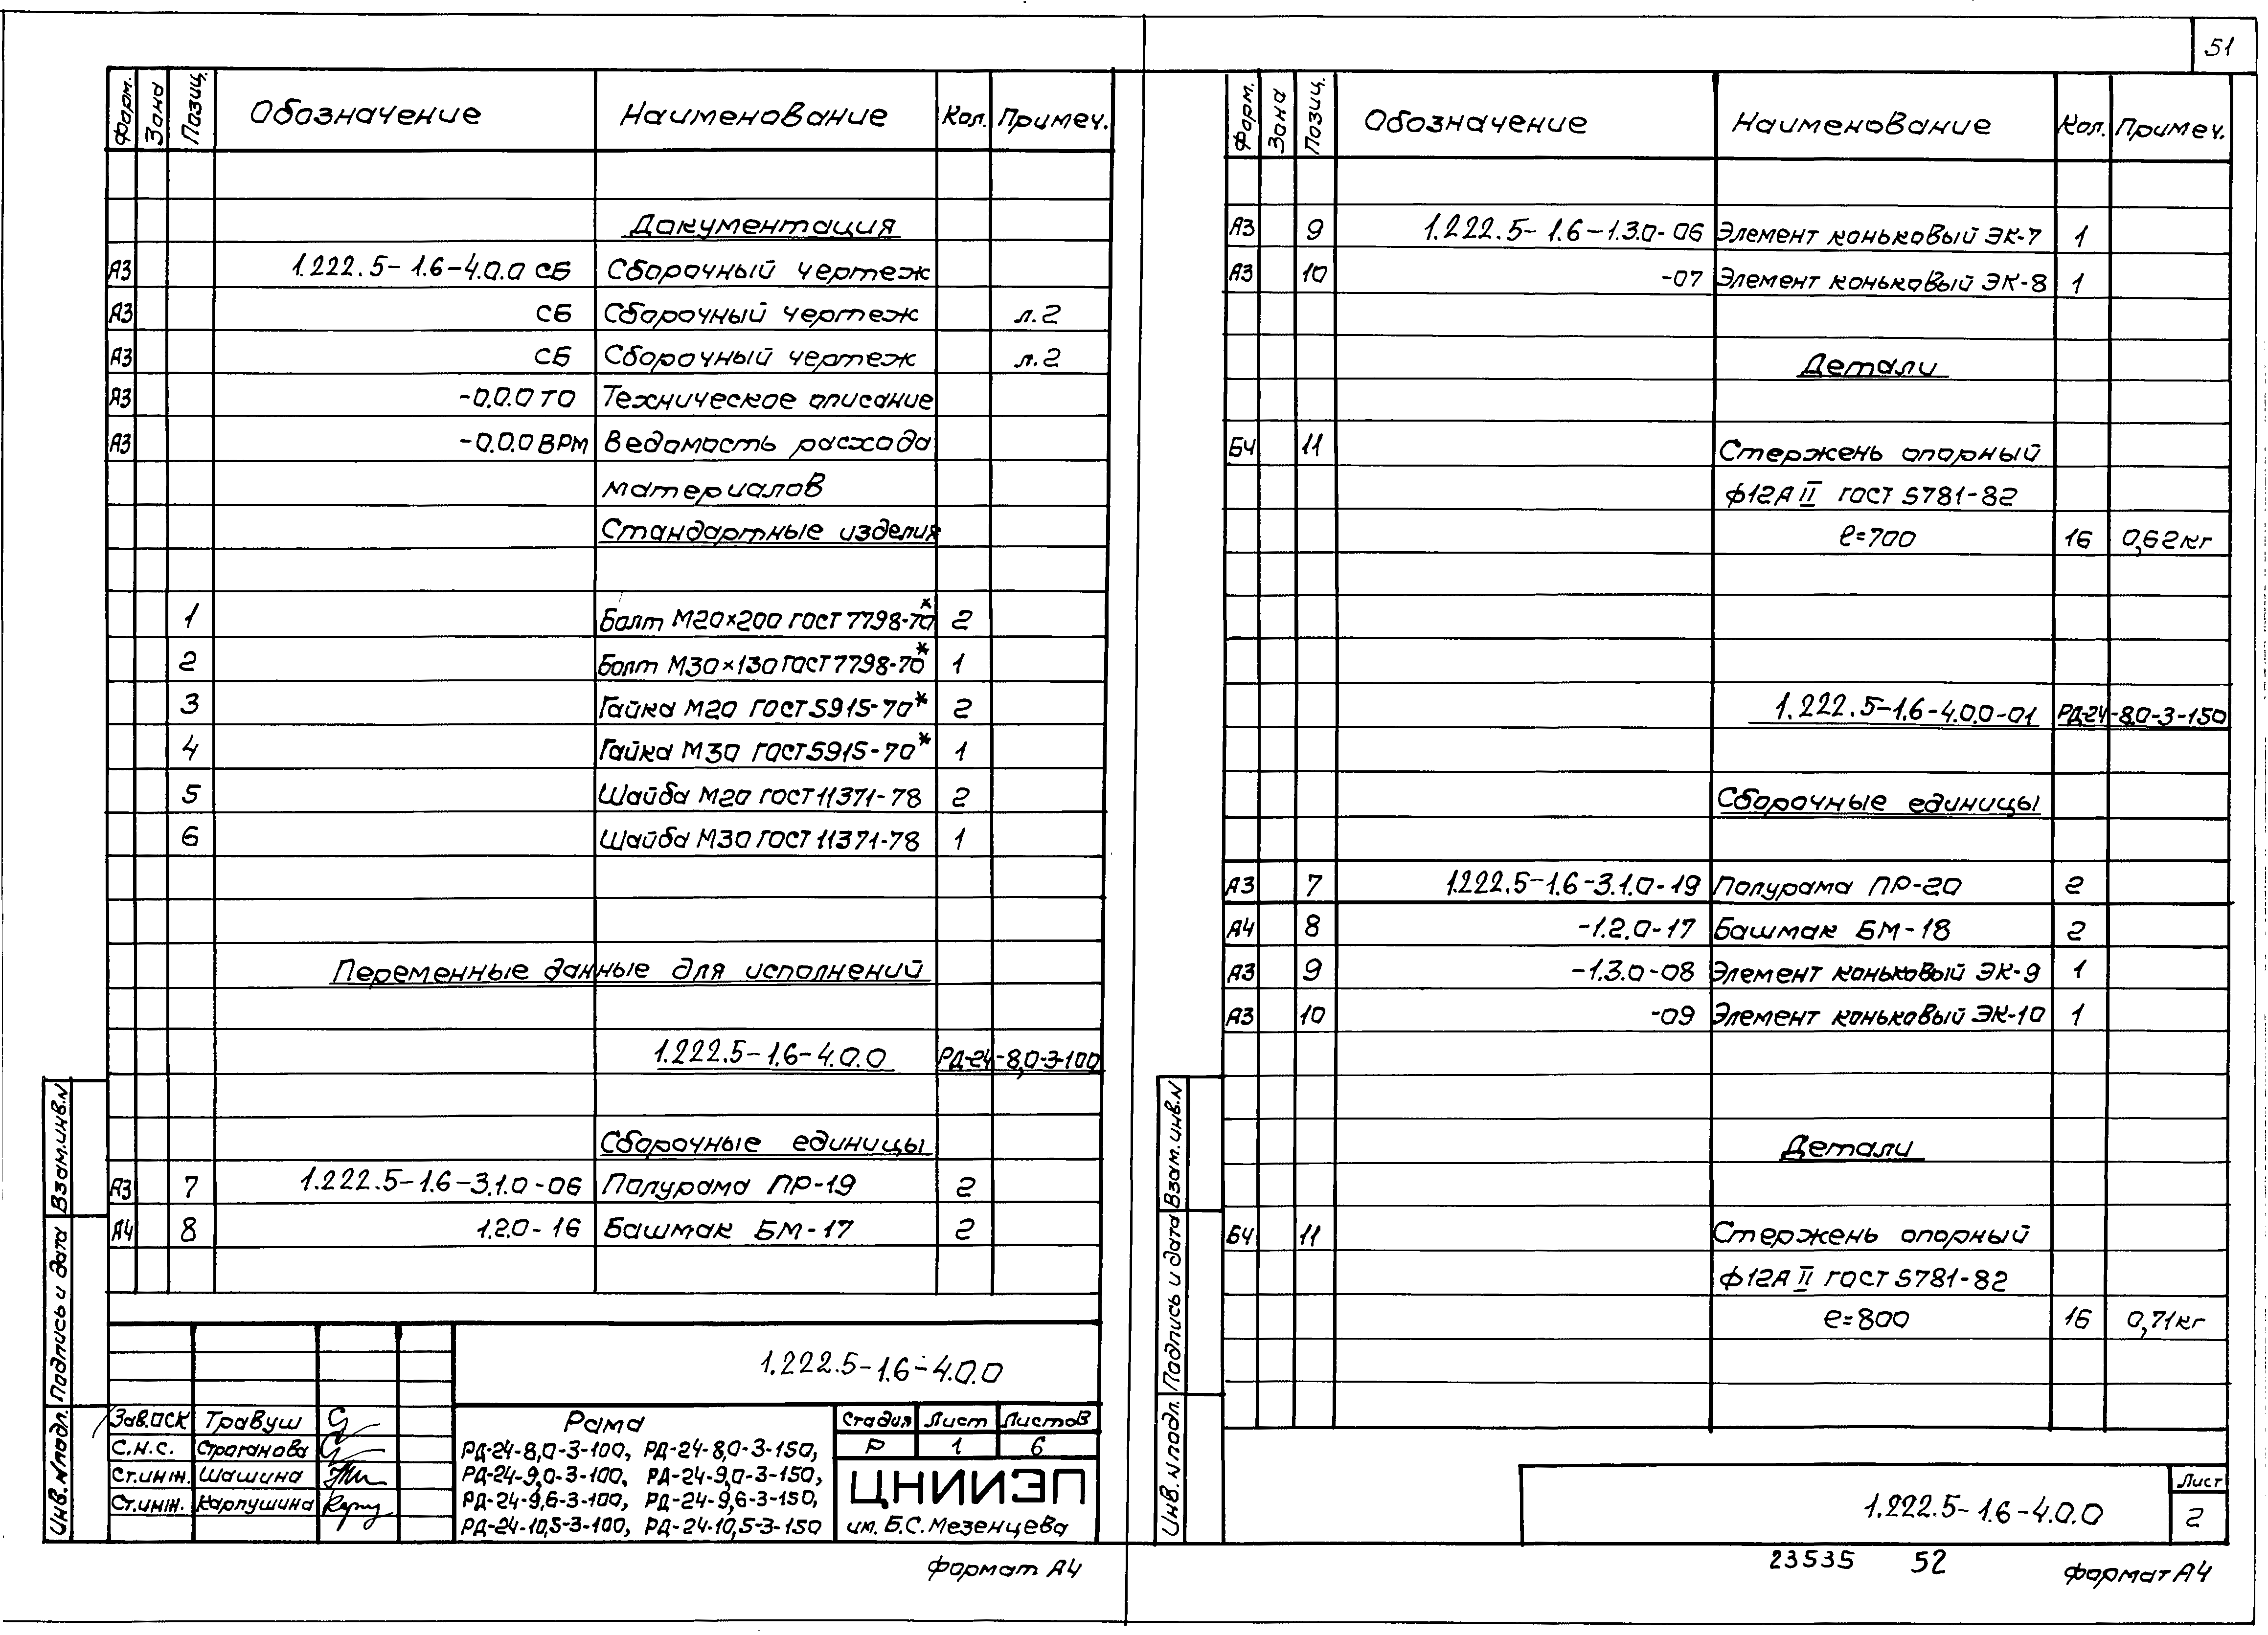 51
Форм. Зона Позиц. Обозначение Наименование Кол. Примеч.
Документация
А3 1.222.5-1.6-4.0.0 СБ Сборочный чертеж
А3 СБ Сборочный чертеж л.2
А3 СБ Сборочный чертеж л.2
А3 -0.0.0 ТО Техническое описание
А3 -0.0.0 ВРМ Ведомость расхода
материалов
Стандартные изделия
1 Болт М20×200 ГОСТ 7798-70* 2
2 Болт М30×130 ГОСТ 7798-70* 1
3 Гайка М20 ГОСТ 5915-70* 2
4 Гайка М30 ГОСТ 5915-70* 1
5 Шайба М20 ГОСТ 11371-78 2
6 Шайба М30 ГОСТ 11371-78 1
Переменные данные для исполнений
1.222.5-1.6-4.0.0 РД-24-8,0-3-100
Сборочные единицы
А3 7 1.222.5-1.6-3.1.0-06 Полурама ПР-19 2
А4 8 1.2.0-16 Башмак БМ-17 2
Инв. N подл. Подпись и дата Взам.инв.N
1.222.5-1.6-4.0.0
Зав.ОСК Травуш
С.н.с. Строганова
Ст.инж. Шашина
Ст.инж. Карпушина
Рама
РД-24-8,0-3-100, РД-24-8,0-3-150,
РД-24-9,0-3-100, РД-24-9,0-3-150,
РД-24-9,6-3-100, РД-24-9,6-3-150,
РД-24-10,5-3-100, РД-24-10,5-3-150
Стадия Лист Листов
Р 1 6
ЦНИИЭП
им. Б.С.Мезенцева
Формат А4
Форм. Зона Позиц. Обозначение Наименование Кол. Примеч.
А3 9 1.222.5-1.6-1.3.0-06 Элемент коньковый ЭК-7 1
А3 10 -07 Элемент коньковый ЭК-8 1
Детали
БЧ 11 Стержень опорный
ф12АII ГОСТ 5781-82
ℓ=700 16 0,62кг
1.222.5-1.6-4.0.0-01 РД-24-8,0-3-150
Сборочные единицы
А3 7 1.222.5-1.6-3.1.0-19 Полурама ПР-20 2
А4 8 -1.2.0-17 Башмак БМ-18 2
А3 9 -1.3.0-08 Элемент коньковый ЭК-9 1
А3 10 -09 Элемент коньковый ЭК-10 1
Детали
БЧ 11 Стержень опорный
ф12АII ГОСТ 5781-82
ℓ=800 16 0,71кг
Инв. N подл. Подпись и дата Взам.инв.N
1.222.5-1.6-4.0.0
Лист
2
23535 52
Формат А4